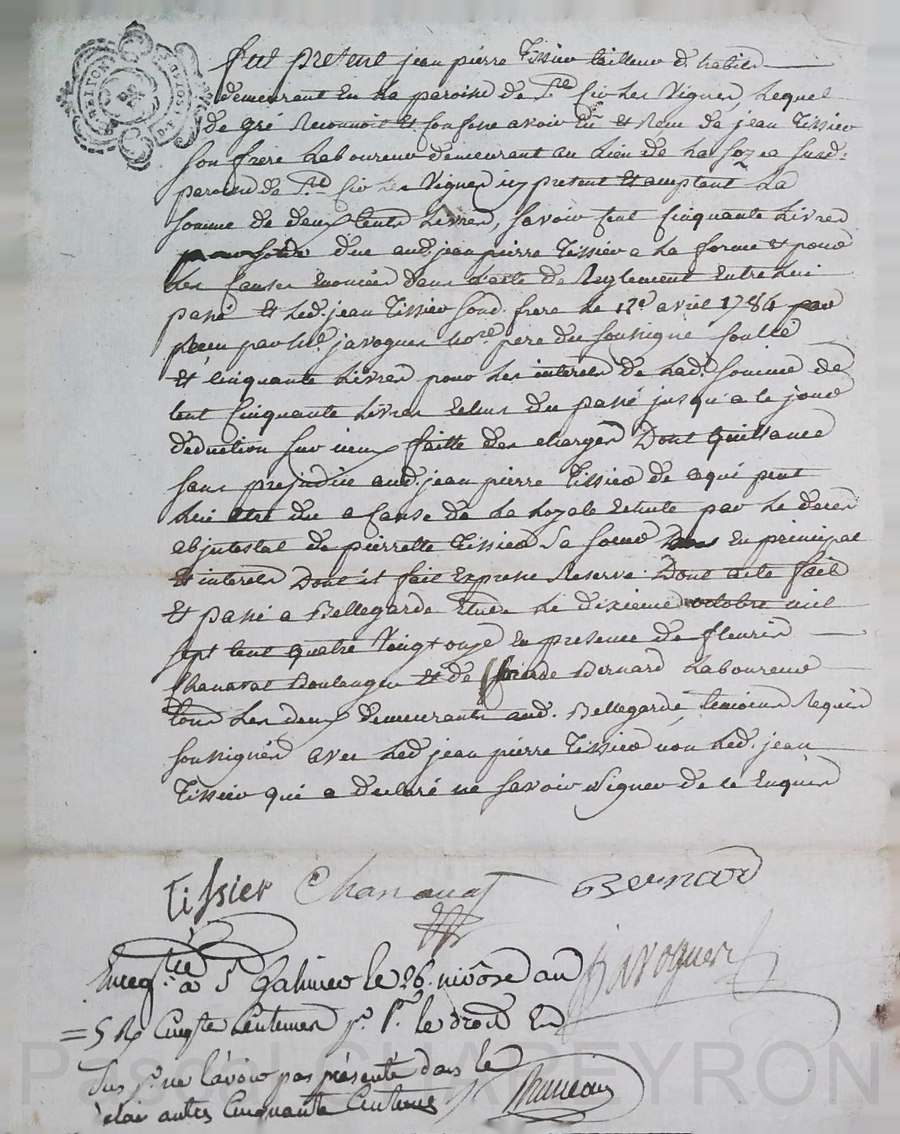 fut present jean pierre Tissier tailleur d'habits
demeurant en la paroisse de St Cir les Vignes, lequel
de gré reconnoit et confesse avoir eu et recu de jean Tissier
son frère laboureur demeurant au lieu de sud.
paroisse de St Cir les Vignes icy present et acceptant la
somme de deux cents livres, savoir cent cinquante livres
due aud. jean pierre Tissier a la forme et pour
les causes enoncées dans l'acte de Reglement entre lui
passé et led. jean Tissier sond. frere le 12e avril 1784
recu par Me javoguer nore pere du soussigné
et cinquante livres pour les interets de lad. somme de
cent cinquante livres echus du passé jusqu'a ce jour
deduction sur iceux faitte des charges Dont Quittance
sans prejudice aud. jean pierre Tissier de ce qui peut
lui etre du a cause de la echute par le deces
abjntestat de pierrette Tissier sa soeur en principal
et interets Dont il fait expresse reserve Dont acte fait
et passé a Bellegarde Etude le dixieme octobre mil
sept cent quatre vingt onze en presence de fleurie
Chanavat Boulanger et de Bernard laboureur
tous les deux demeurants aud. Bellegarde temoins requis
soussignés avec led. jean pierre Tissier non led. jean
Tissier qui a declaré ne savoir signer de ce enquis
Tissier Chanavat Bernard
javoguer
Enregtré à St Galmier le 26 nivôse an
= 5 Rs Cinqte Centimes pr le droit En
Sus pr ne l'avoir pas présenté dans le
délai autres Cinquante Centimes
Pascal CHAPEYRON